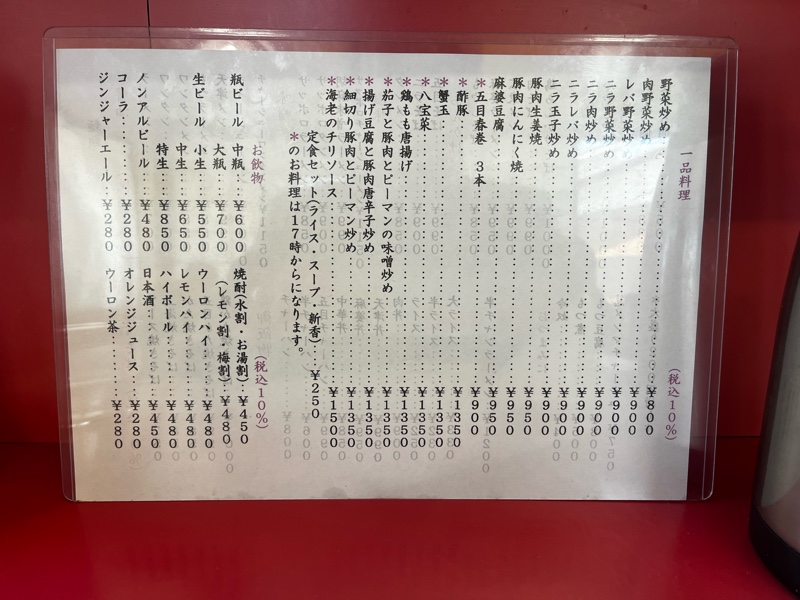 一品料理 (税込10%)
野菜炒め ¥800
肉野菜炒め ¥900
レバ野菜炒め ¥900
ニラ野菜炒め ¥900
ニラ肉炒め ¥900
ニラレバ炒め ¥900
ニラ玉子炒め ¥900
豚肉生姜焼 ¥950
豚肉にんにく焼 ¥950
麻婆豆腐 ¥950
*五目春巻 3本 ¥900
*酢豚 ¥1350
*蟹玉 ¥1350
*八宝菜 ¥1250
*鶏もも唐揚げ ¥1350
*茄子と豚肉とピーマンの味噌炒め ¥1350
*揚げ豆腐と豚肉唐辛子炒め ¥1350
*細切り豚肉とピーマン炒め ¥1350
*海老のチリソース ¥1500
定食セット(ライス・スープ・新香) ¥250
*のお料理は17時からになります。
お飲物 (税込10%)
瓶ビール 中瓶 ¥600
大瓶 ¥700
生ビール 小生 ¥550
中生 ¥650
特生 ¥850
ノンアルビール ¥480
コーラ ¥280
ジンジャーエール ¥280
焼酎(水割・お湯割) ¥450
(レモン割・梅割) ¥480
ウーロンハイ ¥480
レモンハイ ¥480
ハイボール ¥480
日本酒 ¥450
オレンジジュース ¥280
ウーロン茶 ¥280